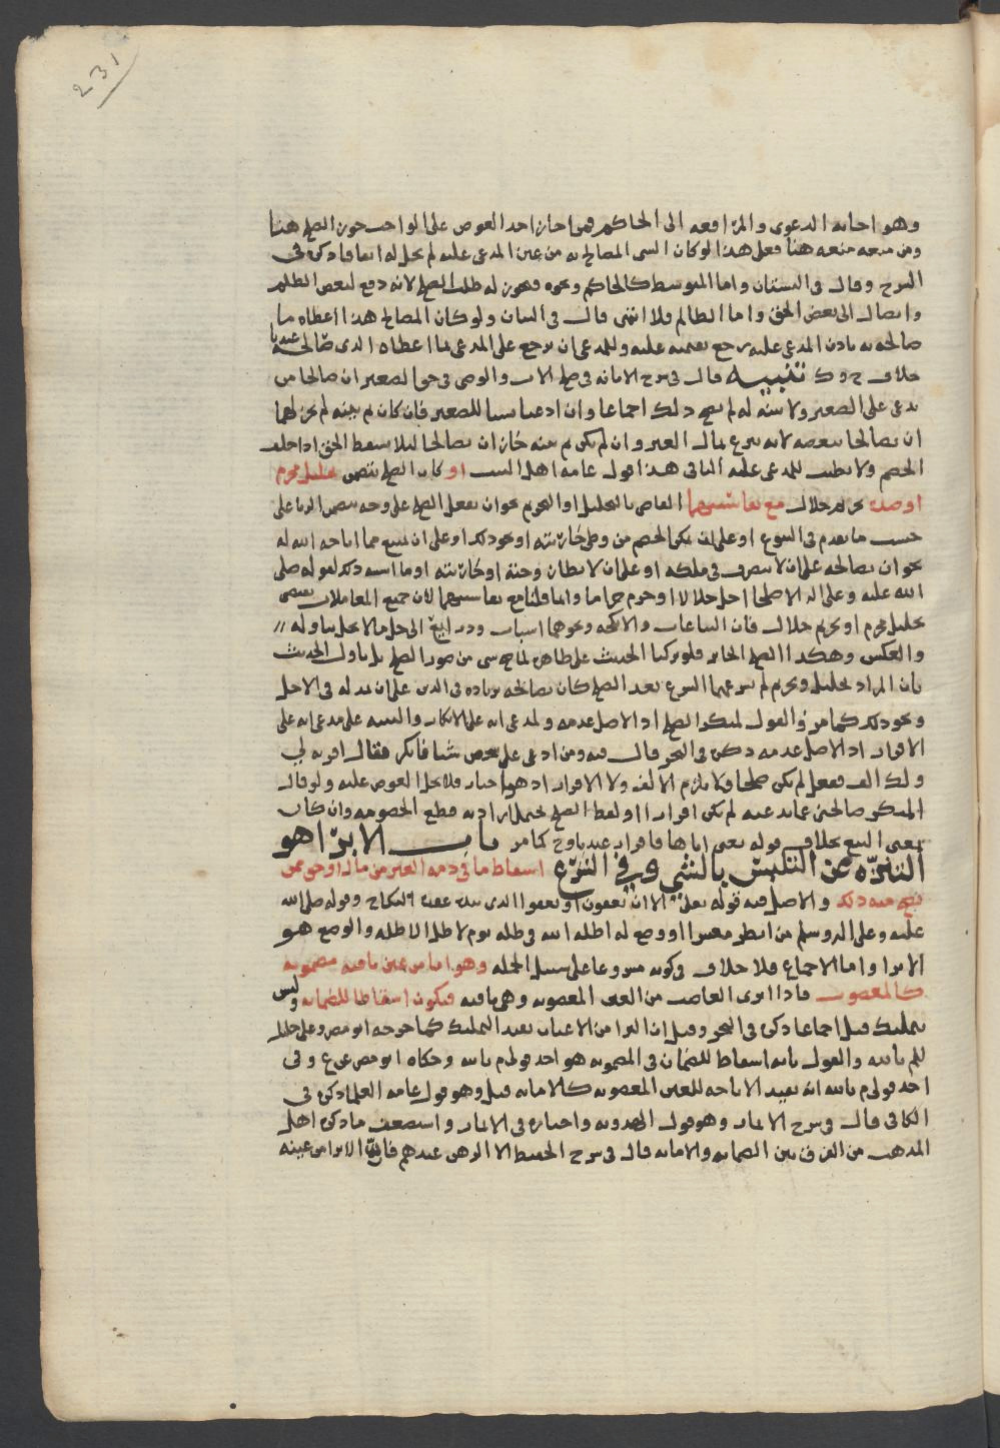 231
وهو اجابه الدعوى والمرافعه الى الحاكم فمن اجاز اخذ العوض على الواجب جوز الصلح هنا
ومن منعه منعه هنا فعلى هذا لو كان الشي المصالح به من عين المدعى عليه لم يحل له اتفاقا ذكره في
الشرح وقال في البستان واما المتوسط كالحاكم ونحوه فيجوز له طلب الصلح لانه دفع لبعض الظلم
وايصال الى بعض الحق واما الظالم فلا انتهى قال في البيان ولو كان المصالح هذا اعطاه ما
صالحه به باذن المدعى عليه رجع بقيمته عليه وللمدعي ان يرجع على المدعى بما اعطاه الذي صالح عنه
خلاف ح وك تنبيه قال في شرح الابانه في صلح الاب والوصي في حق الصغير ان صالحا من
يدعي على الصغير ولا بينه له لم يصح ذلك اجماعا وان ادعيا شيا للصغير فان كان ثم بينه لم يجز لهما
ان يصالحا ببعضه لانه تبرع بمال الغير وان لم يكن ثم بينه جاز ان يصالحا لئلا يسقط الحق اذا حلف
الخصم ولا يطيب للمدعى عليه الباقي هذا قول عامه اهل البيت او كان الصلح يتضمن تحليل محرم
او ضده تحريم حلال مع بقا سببهما القاضي بالتحليل او التحريم نحو ان يفعل الصلح على وجه يتضمن الربا على
حسب ما تقدم في البيوع او على ان يمكن الخصم من وطئ جاريته او نحو ذلك او على ان يمنع مما اباحه الله له
نحو ان يصالحه على ان لا يتصرف في ملكه او على ان لا يطا زوجته او جاريته او ما اشبه ذلك لقوله صلى
الله عليه وعلى اله الا صلحا احل حراما او حرم حلالا وانما قلنا مع بقا سببهما لان جميع المعاملات تقتضي
تحليل محرم او تحريم حلال فان البياعات والانكحه ونحوهما اسباب وذرايع الى حل ما لا يحل تناوله
والعكس وهكذا الصلح الجائز فلو تركنا الحديث على ظاهره لما صح شي من صور الصلح بل تاول الحديث
بان المراد تحليل وتحريم لم يرد بهما الشرع بعد الصلح كان يصالحه بزياده في الدين على ان يمد له في الاجل
ونحو ذلك كما مر والقول لمنكر الصلح اذ الاصل عدمه ولمدعي انه على الانكار والبينه على مدعي انه على
الاقرار اذ الاصل عدمه ذكره في البحر قال فيه ومن ادعى على شخص شيا فانكر فقال اقر به لي
ولك الف ففعل لم يكن صلحا ولا يلزم الالف ولا الاقرار اذ هو اخبار فلا يحل العوض عليه ولو قال
المنكر صالحني عما تدعيه لم يكن اقرارا اذ لفظ الصلح يحتمل ارادته قطع الخصومه وان كان
بمعنى البيع بخلاف قوله بعني اياها فاقرار عندنا وح كما مر باب الابرا هو
التنزه عن التلبس بالشي وفي الشرع اسقاط ما في ذمه الغير من مال او حق ممن
يصح منه ذلك والاصل فيه قوله تعالى الا ان يعفون او يعفوا الذي بيده عقده النكاح وقوله صلى الله
عليه وعلى اله وسلم من انظر معسرا او وضع له اظله الله في ظله يوم لا ظل الا ظله والوضع هو
الابرا واما الاجماع فلا خلاف في كونه مشروعا على سبيل الجمله وهو اما من عين باقيه مضمونه
كالمغصوب فاذا ابرى الغاصب من العين المغصوبه وهي باقيه فيكون اسقاطا للضمان وليس
بتمليك قيل اجماعا ذكره في البحر وقيل ان البرا من الاعيان يفيد التمليك كما خرجه ابو مضر وعلي خليل
للم بالله والقول بانه اسقاط للضمان في المضمونه هو احد قولي م بالله وحكاه ابو مضر عن ع وفي
احد قولي م بالله انه يفيد الاباحه للعين المغصوبه كالامانه قيل وهو قول عامه العلما ذكره في
الكافي قال في شرح الاثمار وهو قول الهدويه واختاره في الاثمار واستضعف ما ذكره اهل
المذهب من الفرق بين الضمانه والامانه قال في شرح الحفيظ الا الرهن عندهم فان الابرا من عينه